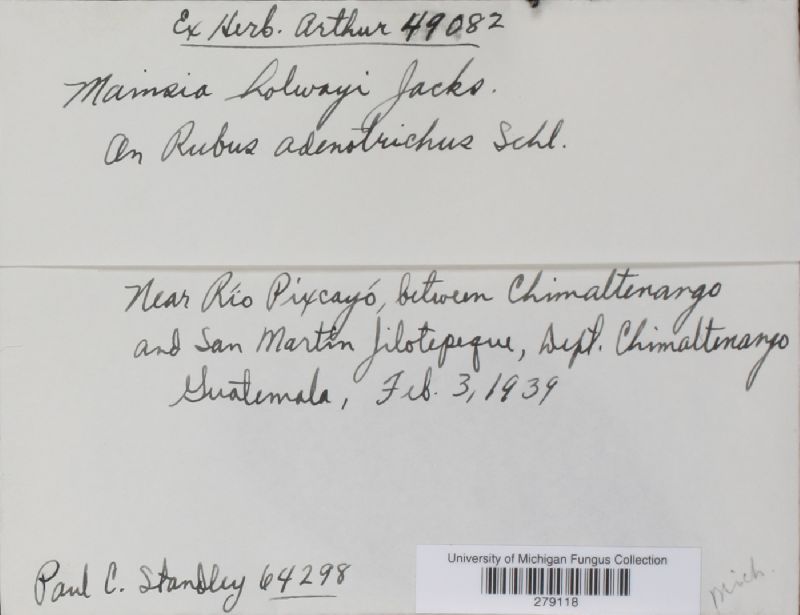 Ex Herb. Arthur 49082
Mainsia holwayi Jacks.
On Rubus adenotrichus Schl.
Near Río Pixcayó, between Chimaltenango
and San Martín Jilotepeque, Dept. Chimaltenango
Guatemala, Feb. 3, 1939
Paul C. Standley 64298
University of Michigan Fungus Collection
279118
Mich.